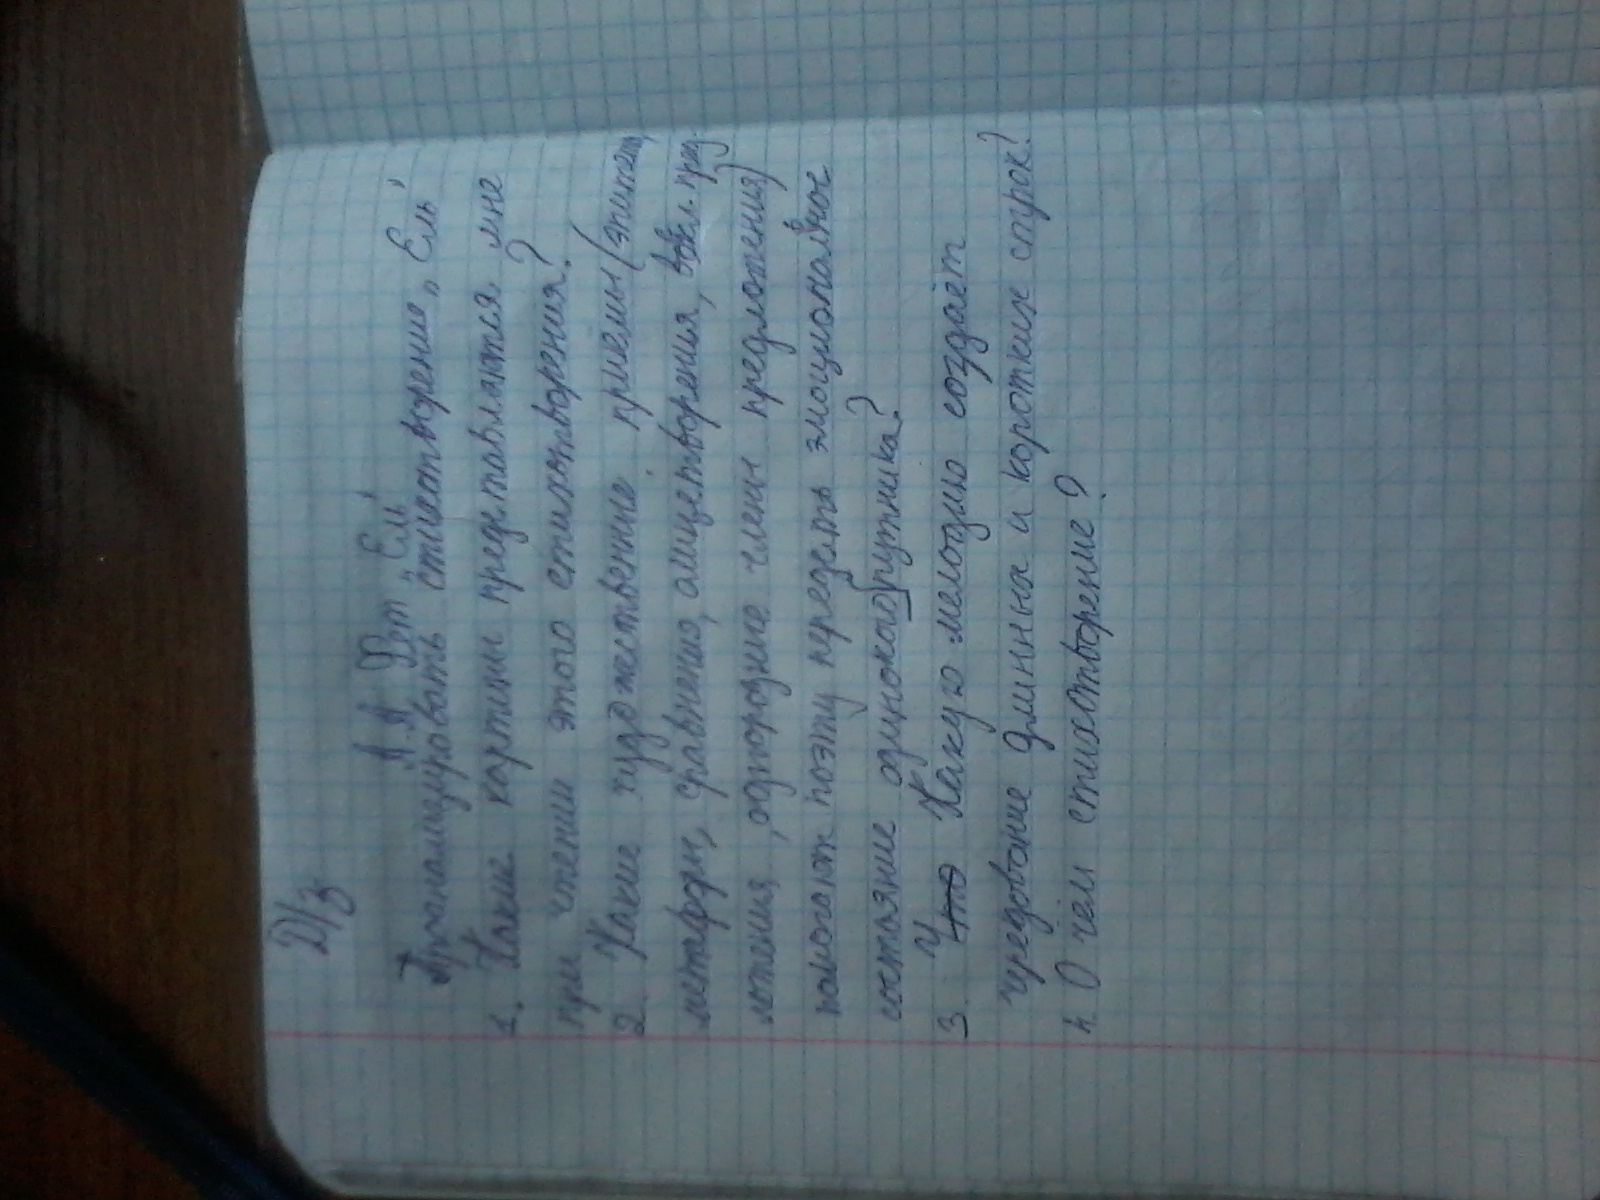 Д/з
А.А Фет „Ель"
Проанализировать стихотворение „Ель"
1. Какие картины представляются мне
при чтении этого стихотворения?
2. Какие худжественные приёмы (эпитеты,
метафоры, сравнения, олицетворения, воскл. пред-
ложения, однородные члены предложения)
помогают поэту передать эмоциональное
состояние одинокого путника?
3. Какую мелодию создаёт
чередование длинных и коротких строк?
4. О чём стихотворение?